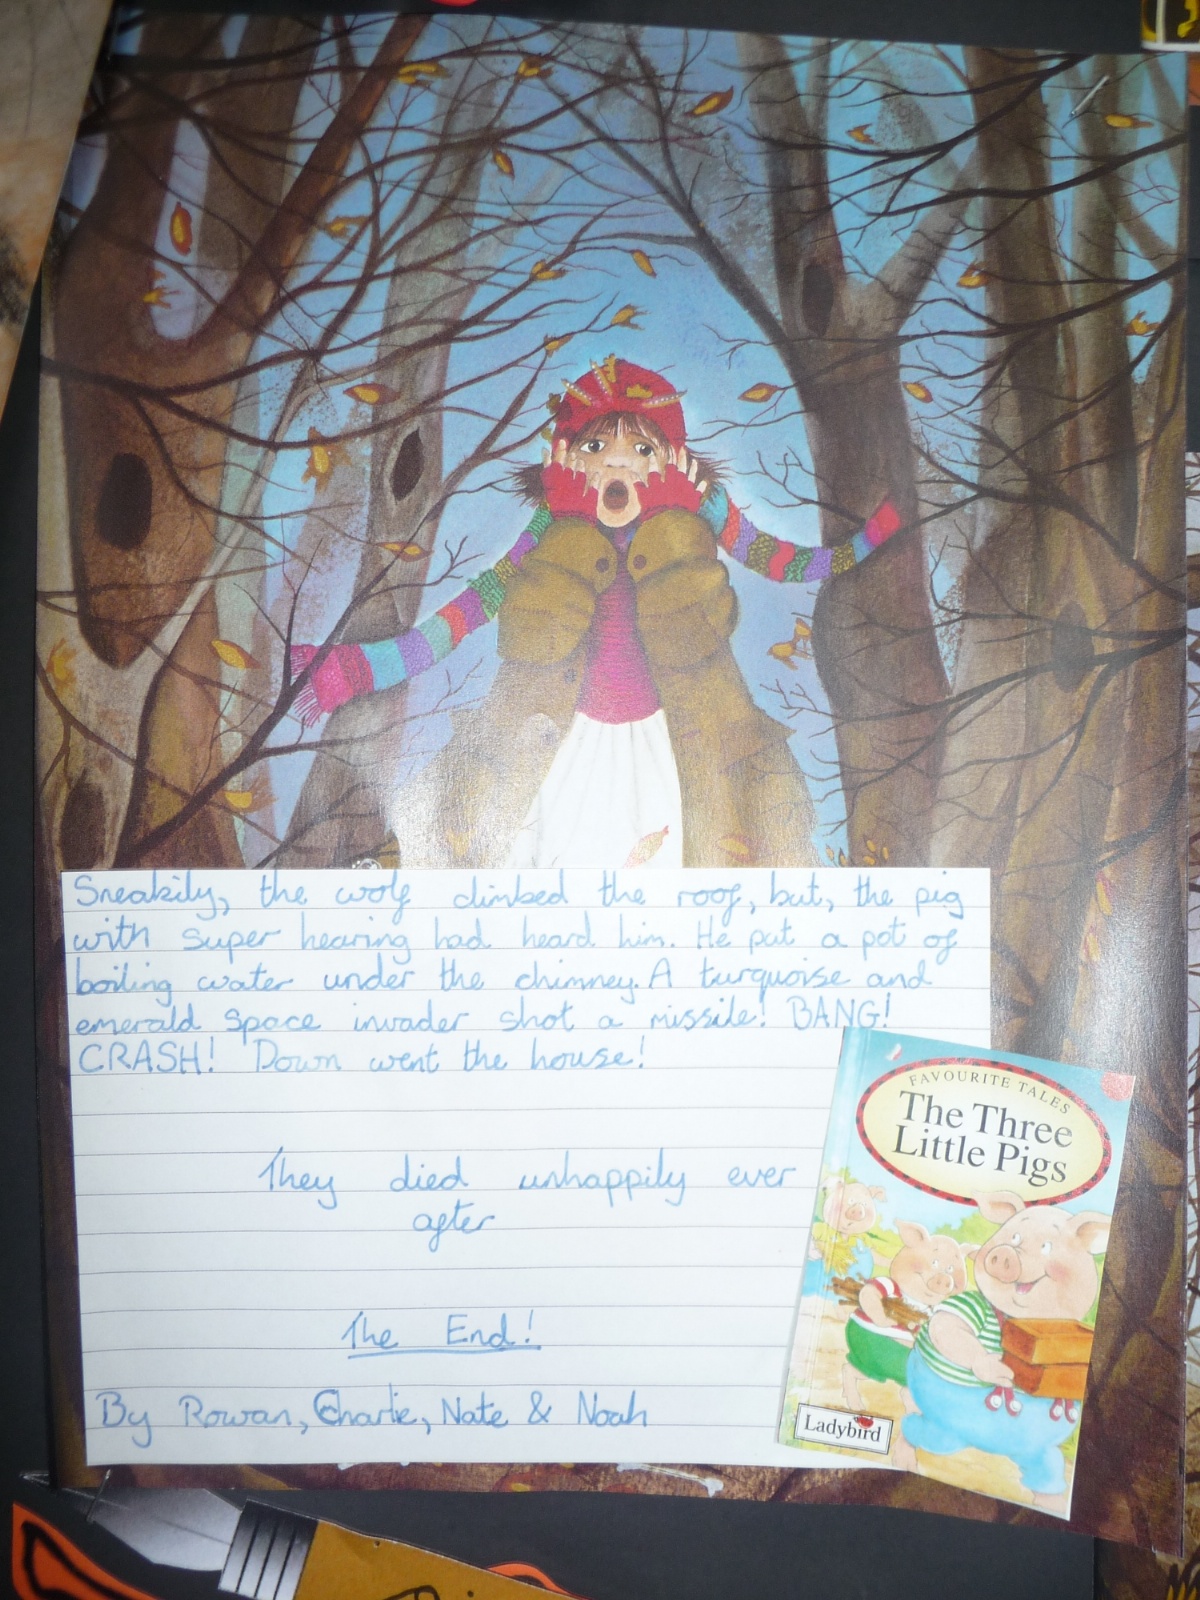 Sneakily, the wolf climbed the roof, but, the pig
with super hearing had heard him. He put a pot of
boiling water under the chimney. A turquoise and
emerald space invader shot a missile! BANG!
CRASH! Down went the house!
They died unhappily ever
after
The End!
By Rowan, Charlie, Nate & Noah
FAVOURITE TALES
The Three
Little Pigs
Ladybird